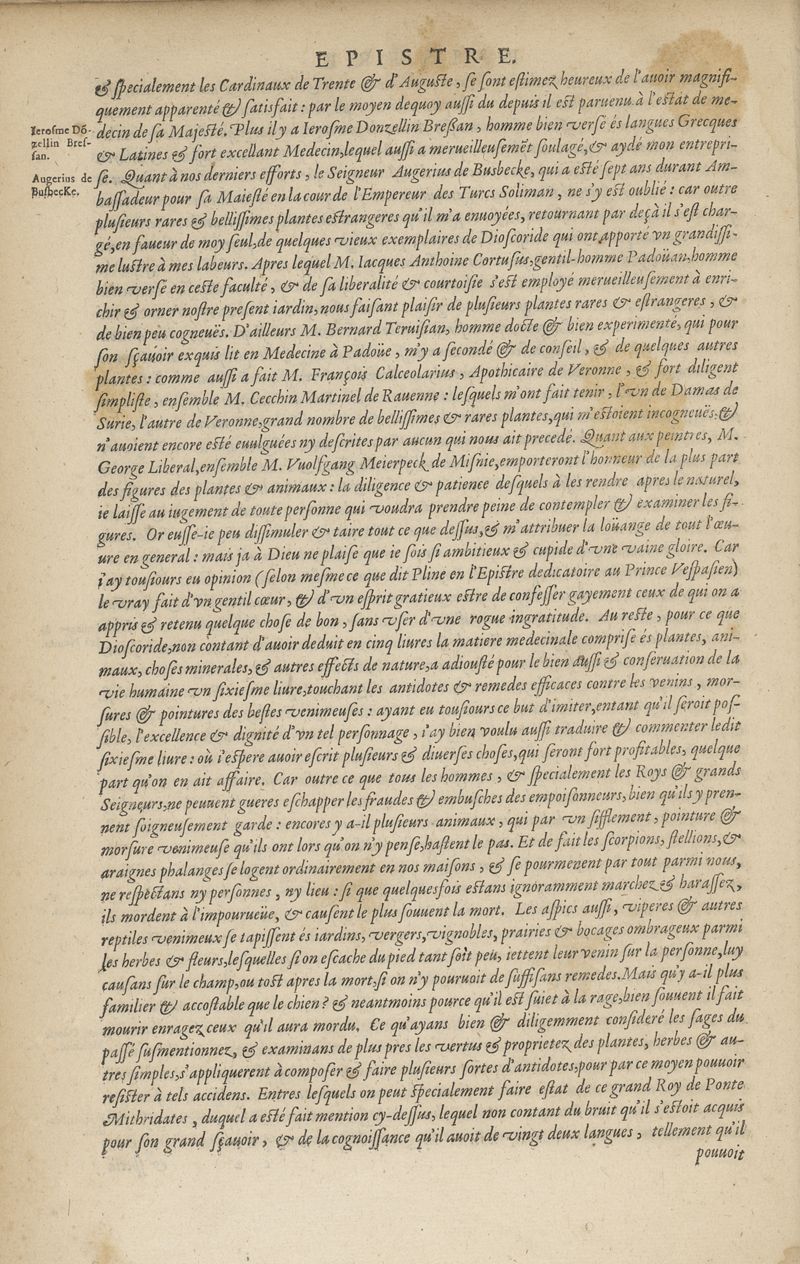 EPISTRE.
& ſpecialement les Cardinaux de Trente & d'Auguſte, ſe ſont eſtimez heureux de l'auoir magnifi-
quement apparenté & ſatisfait: par le moyen dequoy auſſi du depuis il eſt paruenu à l'eſtat de me-
Ieroſme Dõ-
zellin Breſ-
ſan.
decin de ſa Majeſté. Plus il y a Ieroſme Donzellin Breßan, homme bien verſé és langues Grecques
& Latines & fort excellant Medecin, lequel auſſi a merueilleuſemẽt ſoulagé, & aydé mon entrepri-
Augerius de
Buſbecke.
ſe. Quant à nos derniers efforts, le Seigneur Augerius de Busbecke, qui a eſté ſept ans durant Am-
baſſadeur pour ſa Maieſté en la cour de l'Empereur des Turcs Soliman, ne s'y eſt oublié: car outre
pluſieurs rares & belliſſimes plantes eſtrangeres qu'il m'a enuoyées, retournant par deçà il s'eſt char-
gé, en faueur de moy ſeul, de quelques vieux exemplaires de Dioſcoride qui ont apporté vn grandiſſi-
me luſtre à mes labeurs. Apres lequel M. Iacques Anthoine Cortuſus, gentil-homme Padoüan, homme
bien verſé en ceſte faculté, & de ſa liberalité & courtoiſie s'eſt employé merueilleuſement à enri-
chir & orner noſtre preſent iardin, nous faiſant plaiſir de pluſieurs plantes rares & eſtrangeres, &
de bien peu cogneuës. D'ailleurs M. Bernard Teruiſian, homme docte & bien experimenté, qui pour
ſon ſçauoir exquis lit en Medecine à Padoüe, m'y a ſecondé & de conſeil, & de quelques autres
plantes: comme auſſi a fait M. François Calceolarius, Apothicaire de Veronne, & fort diligent
ſimpliſte, enſemble M. Cecchin Martinel de Rauenne: leſquels m'ont fait tenir, l'vn de Damas de
Surie, l'autre de Veronne, grand nombre de belliſſimes & rares plantes, qui m'eſtoient incogneuës, &
n'auoient encore eſté euulguées ny deſcrites par aucun qui nous ait precedé. Quant aux peintres, M.
George Liberal, enſemble M. Vuolfgang Meierpeck de Miſnie, emporteront l'honneur de la plus part
des figures des plantes & animaux: la diligence & patience deſquels à les rendre apres le naturel,
ie laiſſe au iugement de toute perſonne qui voudra prendre peine de contempler & examiner les fi-
gures. Or euſſe-ie peu diſſimuler & taire tout ce que deſſus, & m'attribuer la loüange de tout l'œu-
ure en general: mais ja à Dieu ne plaiſe que ie ſois ſi ambitieux & cupide d'vne vaine gloire. Car
i'ay touſiours eu opinion (ſelon meſme ce que dit Pline en l'Epiſtre dedicatoire au Prince Veſpaſien)
le vray fait d'vn gentil cœur, & d'vn eſprit gratieux eſtre de confeſſer gayement ceux de qui on a
appris & retenu quelque choſe de bon, ſans vſer d'vne rogue ingratitude. Au reſte, pour ce que
Dioſcoride, non contant d'auoir deduit en cinq liures la matiere medecinale compriſe és plantes, ani-
maux, choſes minerales, & autres effects de nature, a adiouſté pour le bien auſſi & conſeruation de la
vie humaine vn ſixieſme liure, touchant les antidotes & remedes efficaces contre les venins, mor-
ſures & pointures des beſtes venimeuſes: ayant eu touſiours ce but d'imiter, entant qu'il ſeroit poſ-
ſible, l'excellence & dignité d'vn tel perſonnage, i'ay bien voulu auſſi traduire & commenter ledit
ſixieſme liure: où i'eſpere auoir eſcrit pluſieurs & diuerſes choſes, qui ſeront fort profitables, quelque
part qu'on en ait affaire. Car outre ce que tous les hommes, & ſpecialement les Roys & grands
Seigneurs, ne peuuent gueres eſchapper les fraudes & embuſches des empoiſonneurs, bien qu'ils y pren-
nent ſoigneuſement garde: encores y a-il pluſieurs animaux, qui par vn ſifflement, pointure &
morſure venimeuſe qu'ils ont lors qu'on n'y penſe, haſtent le pas. Et de fait les ſcorpions, ſtellions, &
araignes phalanges ſe logent ordinairement en nos maiſons, & ſe pourmenent par tout parmi nous,
ne reſpectans ny perſonnes, ny lieu: ſi que quelquesfois eſtans ignoramment marchez & haraſſez,
ils mordent à l'impourueüe, & cauſent le plus ſouuent la mort. Les aſpics auſſi, viperes & autres
reptiles venimeux ſe tapiſſent és iardins, vergers, vignobles, prairies & bocages ombrageux parmi
les herbes & fleurs, leſquelles ſi on eſcache du pied tant ſoit peu, iettent leur venin ſur la perſonne, luy
cauſans ſur le champ, ou toſt apres la mort, ſi on n'y pouruoit de ſuffiſans remedes. Mais qu'y a-il plus
familier & accoſtable que le chien? & neantmoins pource qu'il eſt ſuiet à la rage, bien ſouuent il fait
mourir enragez ceux qu'il aura mordu. Ce qu'ayans bien & diligemment conſideré les ſages du
paſſé ſuſmentionnez, & examinans de plus pres les vertus & proprietez des plantes, herbes & au-
tres ſimples, s'appliquerent à compoſer & faire pluſieurs ſortes d'antidotes, pour par ce moyen pouuoir
reſiſter à tels accidens. Entres leſquels on peut ſpecialement faire eſtat de ce grand Roy de Ponte
Mithridates, duquel a eſté fait mention cy-deſſus, lequel non contant du bruit qu'il s'eſtoit acquis
pour ſon grand ſçauoir, & de la cognoiſſance qu'il auoit de vingt deux langues, tellement qu'il
pouuoit